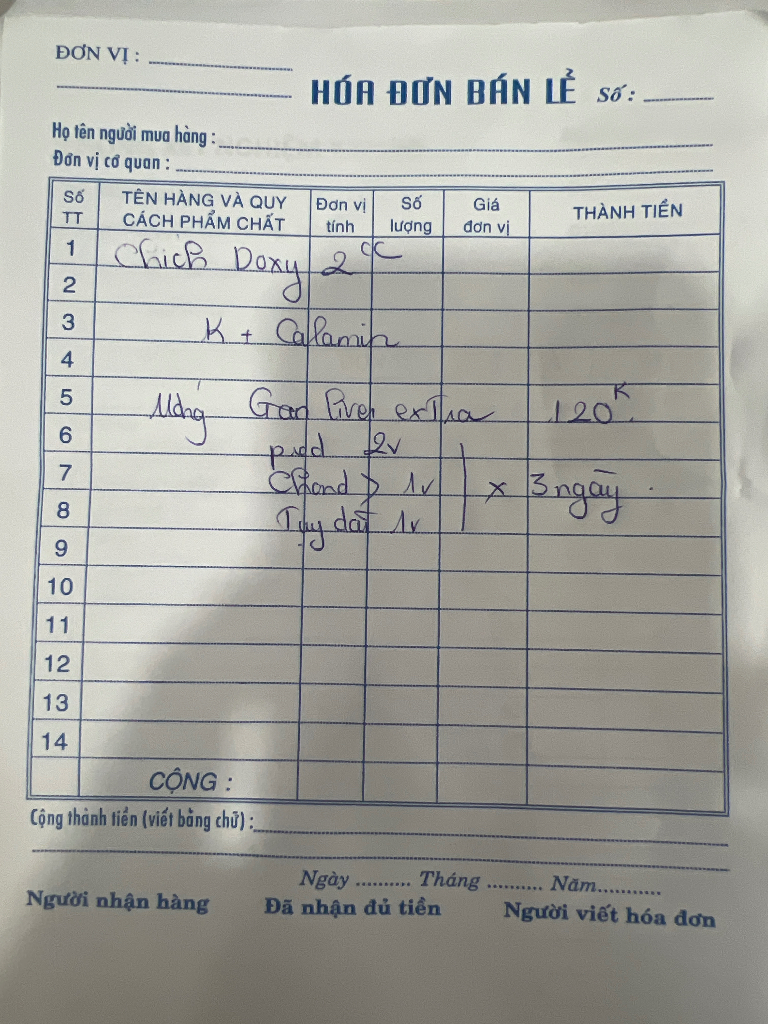 ĐƠN VỊ :
HÓA ĐƠN BÁN LẺ Số :
Họ tên người mua hàng :
Đơn vị cơ quan :
Số TT TÊN HÀNG VÀ QUY CÁCH PHẨM CHẤT Đơn vị tính Số lượng Giá đơn vị THÀNH TIỀN
1 Chích Doxy 2cc
2
3 K + Calamin
4
5 Uống Gan liver extra 120K
6 pred 2v
7 1v x 3 ngày
8 1v
9
10
11
12
13
14
CỘNG :
Cộng thành tiền (viết bằng chữ) :
Ngày .......... Tháng .......... Năm...........
Người nhận hàng Đã nhận đủ tiền Người viết hóa đơn